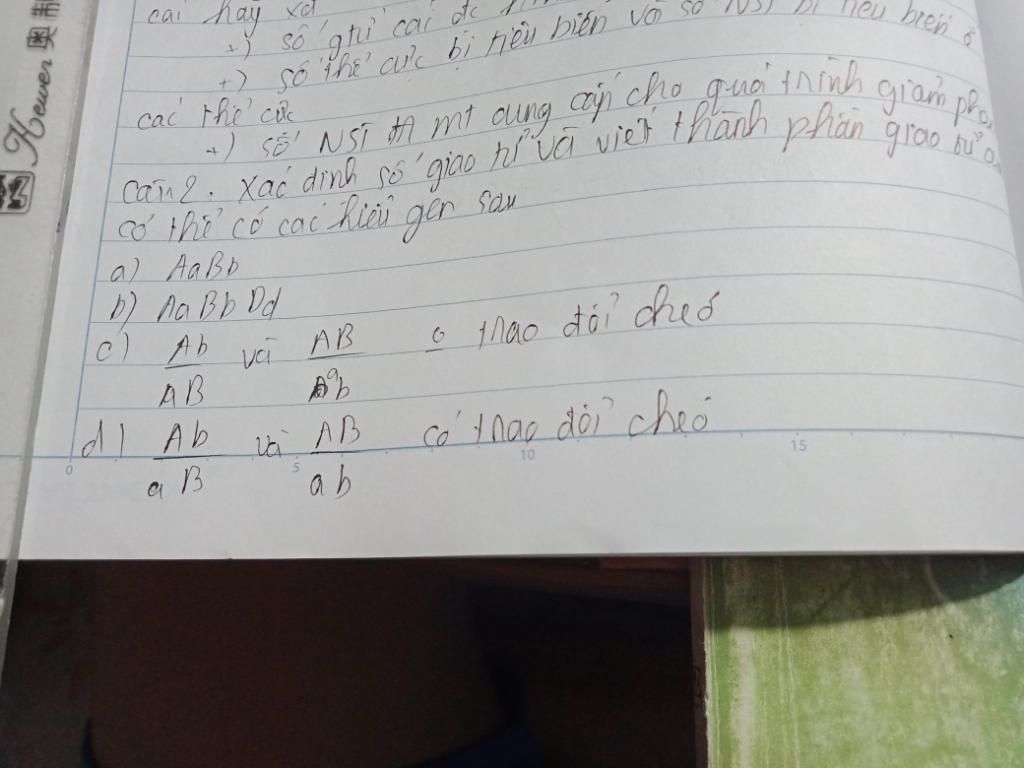 cái hãy xđ
+) số ghi cái đc
+) số thể cực bị tiêu biến và số NST bị tiêu biến ở
các thể cực
+) số NST đn mt cung cấp cho quá trình giảm phâ
Câu 2: Xác định số giao tử và viết thành phần giao tử
có thể có các kiểu gen sau
a) AaBb
b) AaBbDd
c) Ab/AB và AB/ab o trao đổi chéo
d) Ab/aB và AB/ab có trao đổi chéo
0 5 10 15
Kewen 奥